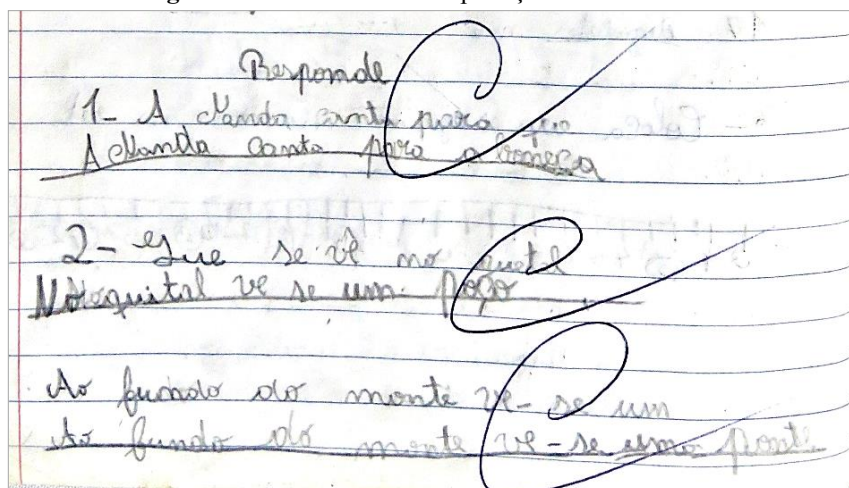 Responde
1- A Nanda canta para que
A Nanda canta para a boneca
2- Que se vê no quital
No quital vê se um poço
Ao fundo do monte vê-se um
Ao fundo do monte vê-se uma ponte